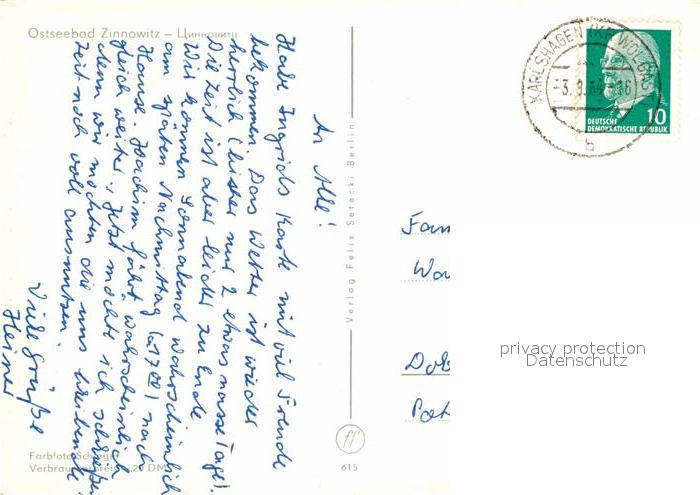 Ostseebad Zinnowitz – Цинновитц
An Alle!
Habe Ingrids Karte mit viel Freude
bekommen. Das Wetter ist wieder
herrlich (bisher nur 2 etwas nasse Tage).
Die Zeit ist aber leider zu Ende
Wir kommen Sonnabend wahrscheinlich
am späten Nachmittag nach
Hause. Joachim fährt wahrscheinlich
gleich weiter. Jetzt möchte ich schließen
denn wir möchten die uns bleibende
Zeit noch voll ausnutzen.
Viele Grüße
Heiner
Farbfoto Schlegel
Verbraucherpreis DM
Verlag Felix Setecki Berlin
615
KARLSHAGEN (KR WOLGAST)
b
10
DEUTSCHE
DEMOKRATISCHE REPUBLIK
Fam
Wa
Dob
privacy protection
Datenschutz